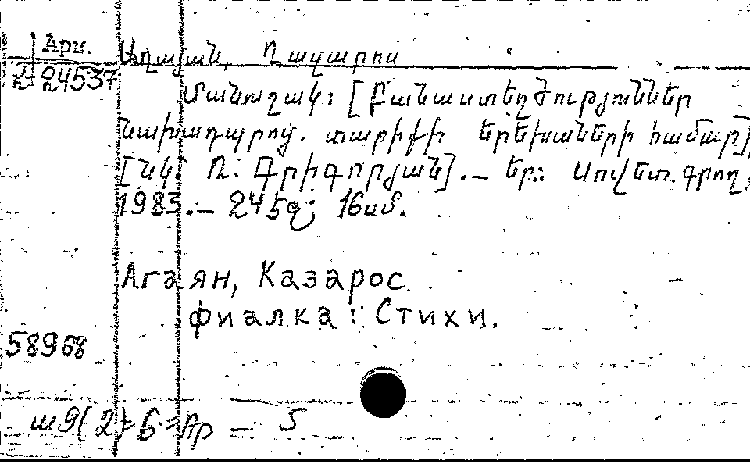 Арм.
2 24537
Աղայան, Ղազարոս
Մանուշակ: [Բանաստեղծություններ
նախադպրոց. տարիքի երեխաների համար],
[նկ. Ռ. Գրիգորյան].— Եր.: Սովետ. գրող,
1983.— 245գ; 16սմ.
Агаян, Казарос
фиалка: Стихи.
58968
ա9(2)=6=Ар — 5